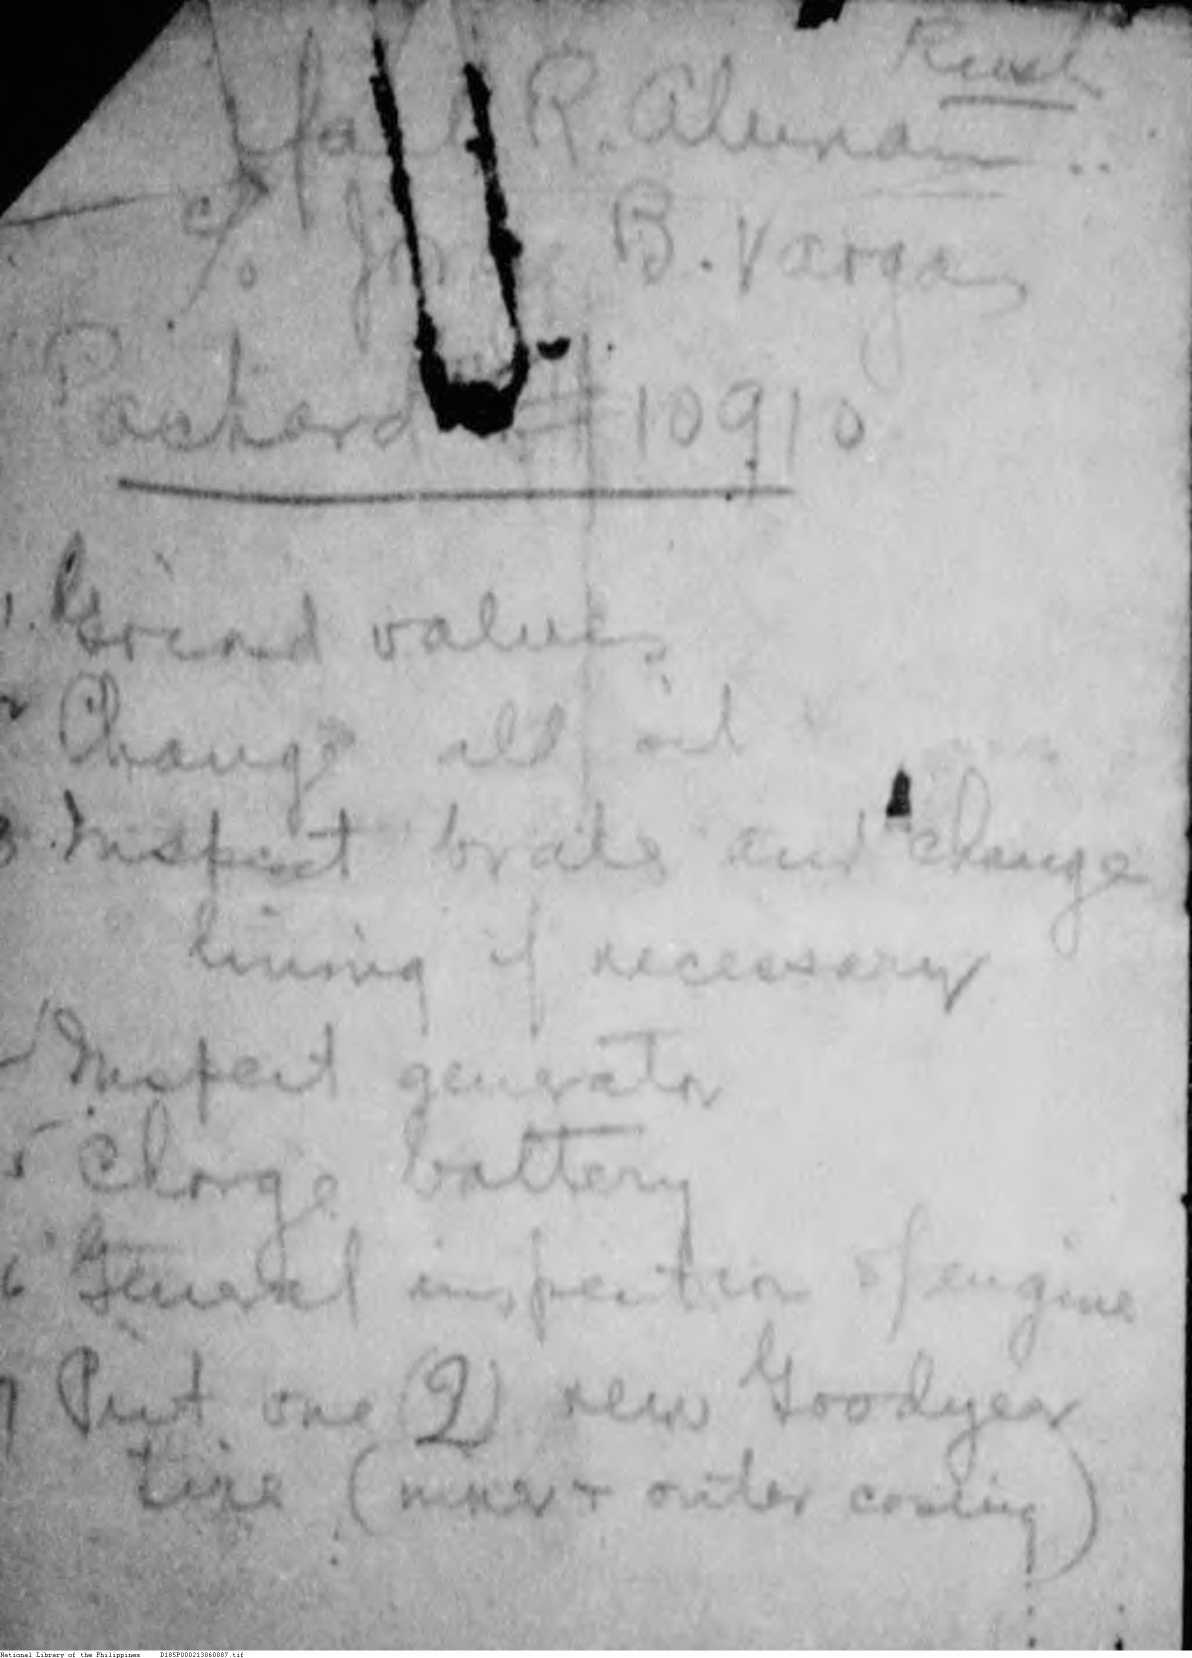 Rush
R. Alunan
c/o Jorge B. Vargas
Packard # 10910
1. Grind valves
2 Change all oil
3. Inspect brake and change
lining if necessary
Inspect generator
5 Charge battery
6 General inspection of engine
7 Put one (2) new Goodyear
tire (inner + outer casing)
National Library of the Philippines D185P000213060887.tif